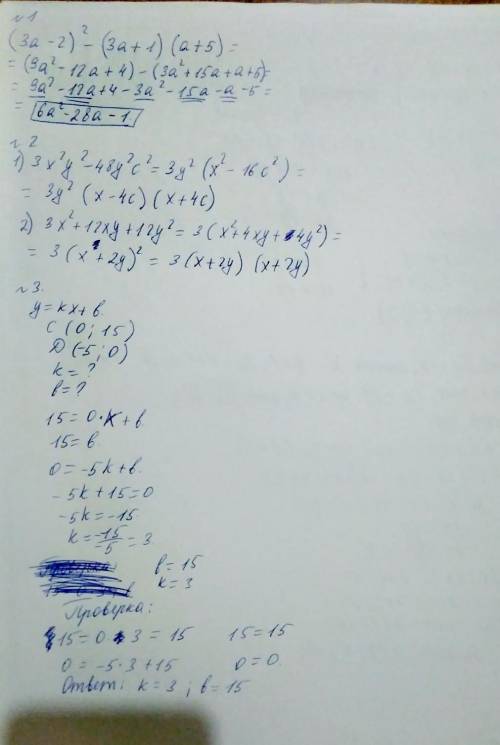 №1
(3a-2)² - (3a+1)(a+5) =
= (9a²-12a+4) - (3a²+15a+a+5)=
= 9a²-12a+4-3a²-15a-a-5=
= 6a²-28a-1
№2
1) 3x²y²-48y²c²=3y²(x²-16c²)=
= 3y²(x-4c)(x+4c)
2) 3x²+12xy+12y²=3(x²+4xy+4y²)=
= 3(x+2y)²=3(x+2y)(x+2y)
№3.
y=kx+b.
C(0;15)
D(-5;0)
k=?
b=?
15=0·k+b.
15=b.
0=-5k+b.
-5k+15=0
-5k=-15
k=-15/-5=3
b=15
k=3
Проверка:
15=0·3=15 15=15
0=-5·3+15 0=0.
Ответ: k=3; b=15